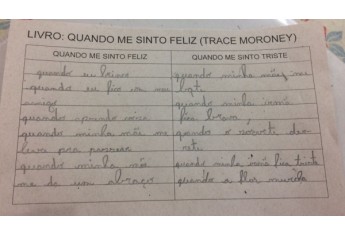 LIVRO: QUANDO ME SINTO FELIZ (TRACE MORONEY)
QUANDO ME SINTO FELIZ
QUANDO ME SINTO TRISTE
quando eu brinco
quando eu
amigo
quando
quando minha mãe me
leva pra passear
quando minha mãe
me da um abraço
quando minha mãe me
quando minha irmã
fica brava
quando o sorvete der
rete
quando minha irmã fica triste
quando a flor murcha